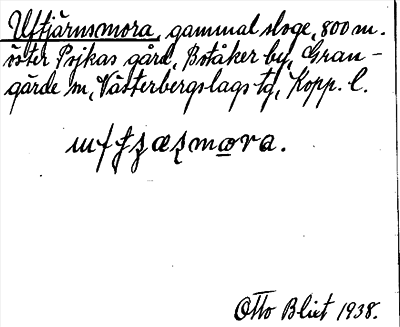 Uftjärnsmora, gammal sloge, 800 m.
öster Psjkas gård, Botåker by, Gran-
gärde sn, Västerbergslags tg, Kopp. l.
Otto Blixt 1938.